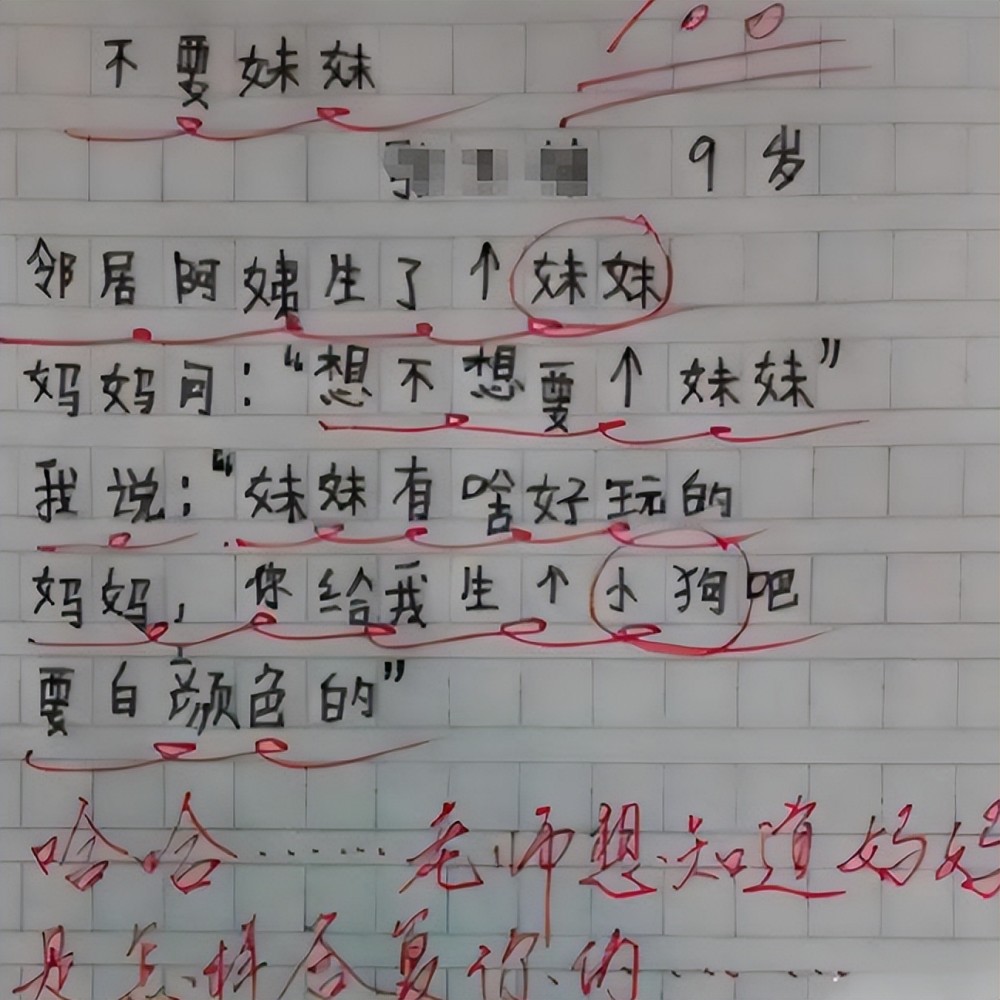 100
不要妹妹
9岁
邻居阿姨生了个妹妹
妈妈问:“想不想要个妹妹”
我说:“妹妹有啥好玩的
妈妈,你给我生个小狗吧
要白颜色的”
哈哈……老师想知道妈妈
是怎样答复你的……